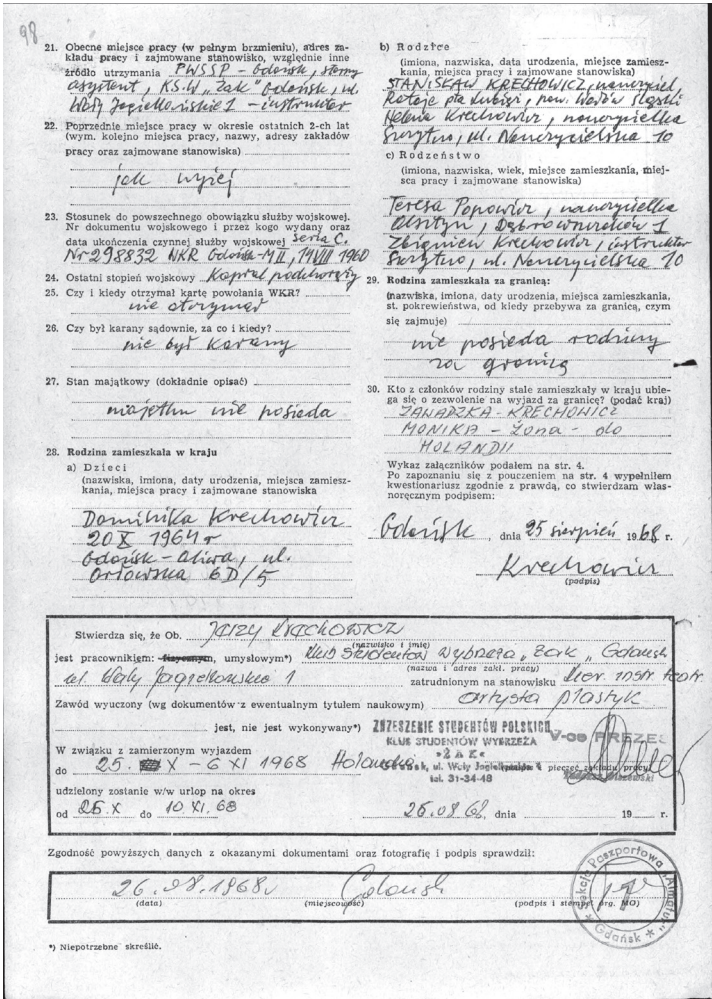 98
21. Obecne miejsce pracy (w pełnym brzmieniu), adres za-
kładu pracy i zajmowane stanowisko, względnie inne
źródło utrzymania PWSSP - Gdańsk, starszy
asystent, K.S.W. „Żak" Gdańsk, ul.
Wały Jagiellońskie 1 - instruktor
22. Poprzednie miejsce pracy w okresie ostatnich 2-ch lat
(wym. kolejno miejsca pracy, nazwy, adresy zakładów
pracy oraz zajmowane stanowiska)
jak wyżej
23. Stosunek do powszechnego obowiązku służby wojskowej.
Nr dokumentu wojskowego i przez kogo wydany oraz
data ukończenia czynnej służby wojskowej Seria C.
Nr 298832 WKR Gdańsk-M II, 1960
24. Ostatni stopień wojskowy Kapral podchorąży
25. Czy i kiedy otrzymał kartę powołania WKR?
nie otrzymał
26. Czy był karany sądownie, za co i kiedy?
nie był karany
27. Stan majątkowy (dokładnie opisać)
majątku nie posiada
28. Rodzina zamieszkała w kraju
a) Dzieci
(nazwiska, imiona, daty urodzenia, miejsca zamiesz-
kania, miejsca pracy i zajmowane stanowiska
Dominika Krechowicz
20 X 1964 r
Gdańsk-Oliwa, ul.
Orłowska 6D/5
b) Rodzice
(imiona, nazwiska, data urodzenia, miejsce zamiesz-
kania, miejsca pracy i zajmowane stanowiska)
STANISŁAW KRECHOWICZ, nauczyciel
pta pow.
Helena Krechowicz, nauczycielka
Szczytno, ul. Nauczycielska 10
c) Rodzeństwo
(imiona, nazwiska, wiek, miejsce zamieszkania, miej-
sca pracy i zajmowane stanowiska)
Teresa Popowicz, nauczycielka
Olsztyn, Dąbrowszczaków 1
Zbigniew Krechowicz, instruktor
Szczytno, ul. Nauczycielska 10
29. Rodzina zamieszkała za granicą:
(nazwiska, imiona, daty urodzenia, miejsca zamieszkania,
st. pokrewieństwa, od kiedy przebywa za granicą, czym
się zajmuje)
nie posiada rodziny
za granicą
30. Kto z członków rodziny stale zamieszkały w kraju ubie-
ga się o zezwolenie na wyjazd za granicę? (podać kraj)
ZAWADZKA-KRECHOWICZ
MONIKA - żona - do
HOLANDII
Wykaz załączników podałem na str. 4.
Po zapoznaniu się z pouczeniem na str. 4 wypełniłem
kwestionariusz zgodnie z prawdą, co stwierdzam włas-
noręcznym podpisem:
Gdańsk, dnia 25 sierpień 1968 r.
Krechowicz
(podpis)
Stwierdza się, że Ob. Jerzy Krechowicz
(nazwisko i imię)
jest pracownikiem: fizycznym, umysłowym*) Klub Studentów Wybrzeża „Żak" Gdańsk
(nazwa i adres zakł. pracy)
ul. Wały Jagiellońskie 1 zatrudnionym na stanowisku instr. teatr.
Zawód wyuczony (wg dokumentów z ewentualnym tytułem naukowym) artysta plastyk
jest, nie jest wykonywany*) ZRZESZENIE STUDENTÓW POLSKICH
KLUB STUDENTÓW WYBRZEŻA
»ŻAK«
Gdańsk, ul. Wały Jagiellońskie 1
tel. 31-34-48
V-ce PREZES
W związku z zamierzonym wyjazdem
do 25. X - 6 XI 1968 Holandia pieczęć zakładu pracy
udzielony zostanie w/w urlop na okres
od 25.X do 10 XI. 68 26.08 68. dnia 19 r.
Zgodność powyższych danych z okazanymi dokumentami oraz fotografię i podpis sprawdził:
26.08.1968r Gdańsk
(data) (miejscowość) (podpis i stempel org. MO)
Sekcja Paszportowa „Almatur" * Gdańsk *
*) Niepotrzebne skreślić.